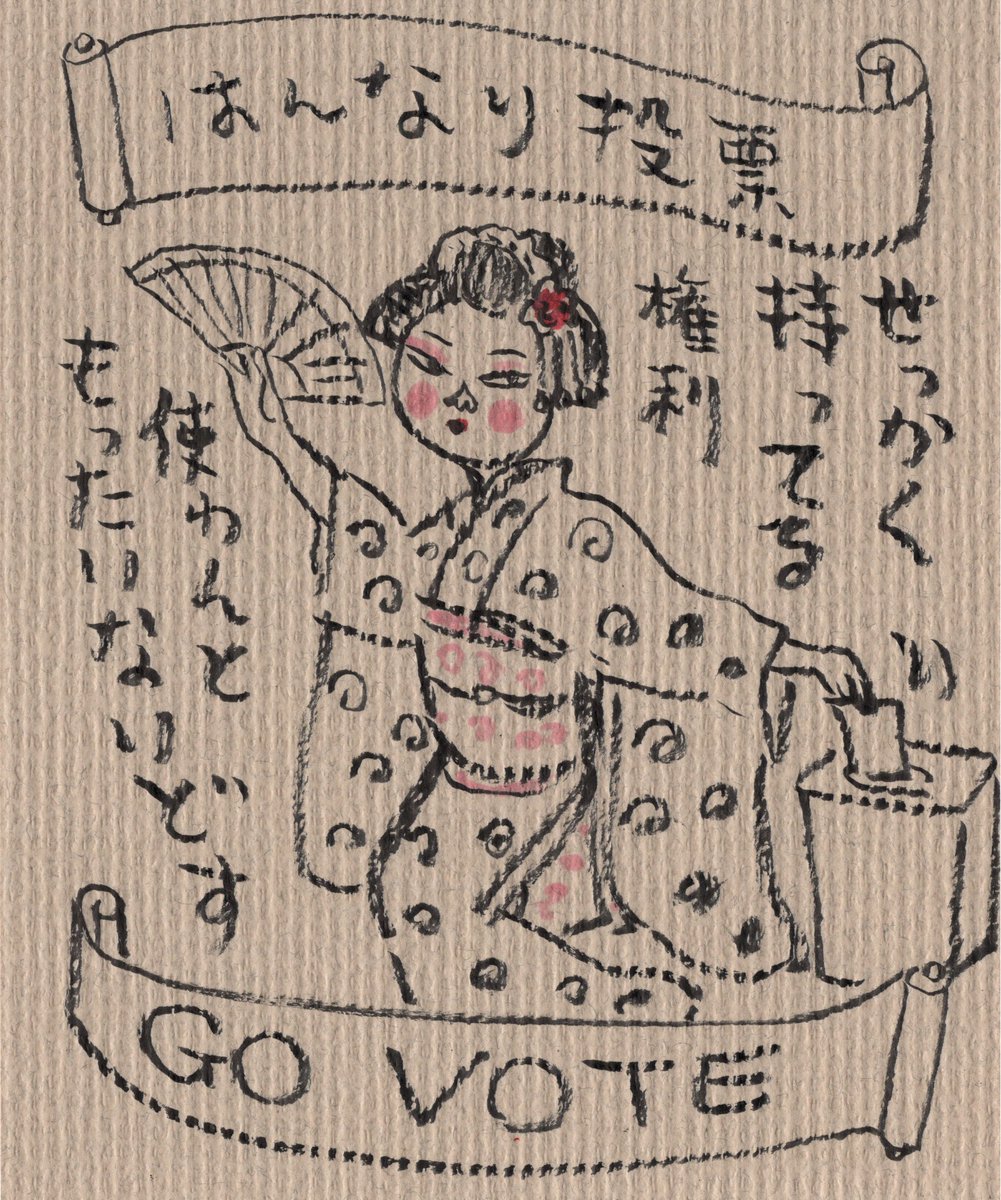 はんなり投票
せっかく
持ってる
権利
使わんと
もったいないどす
GO VOTE